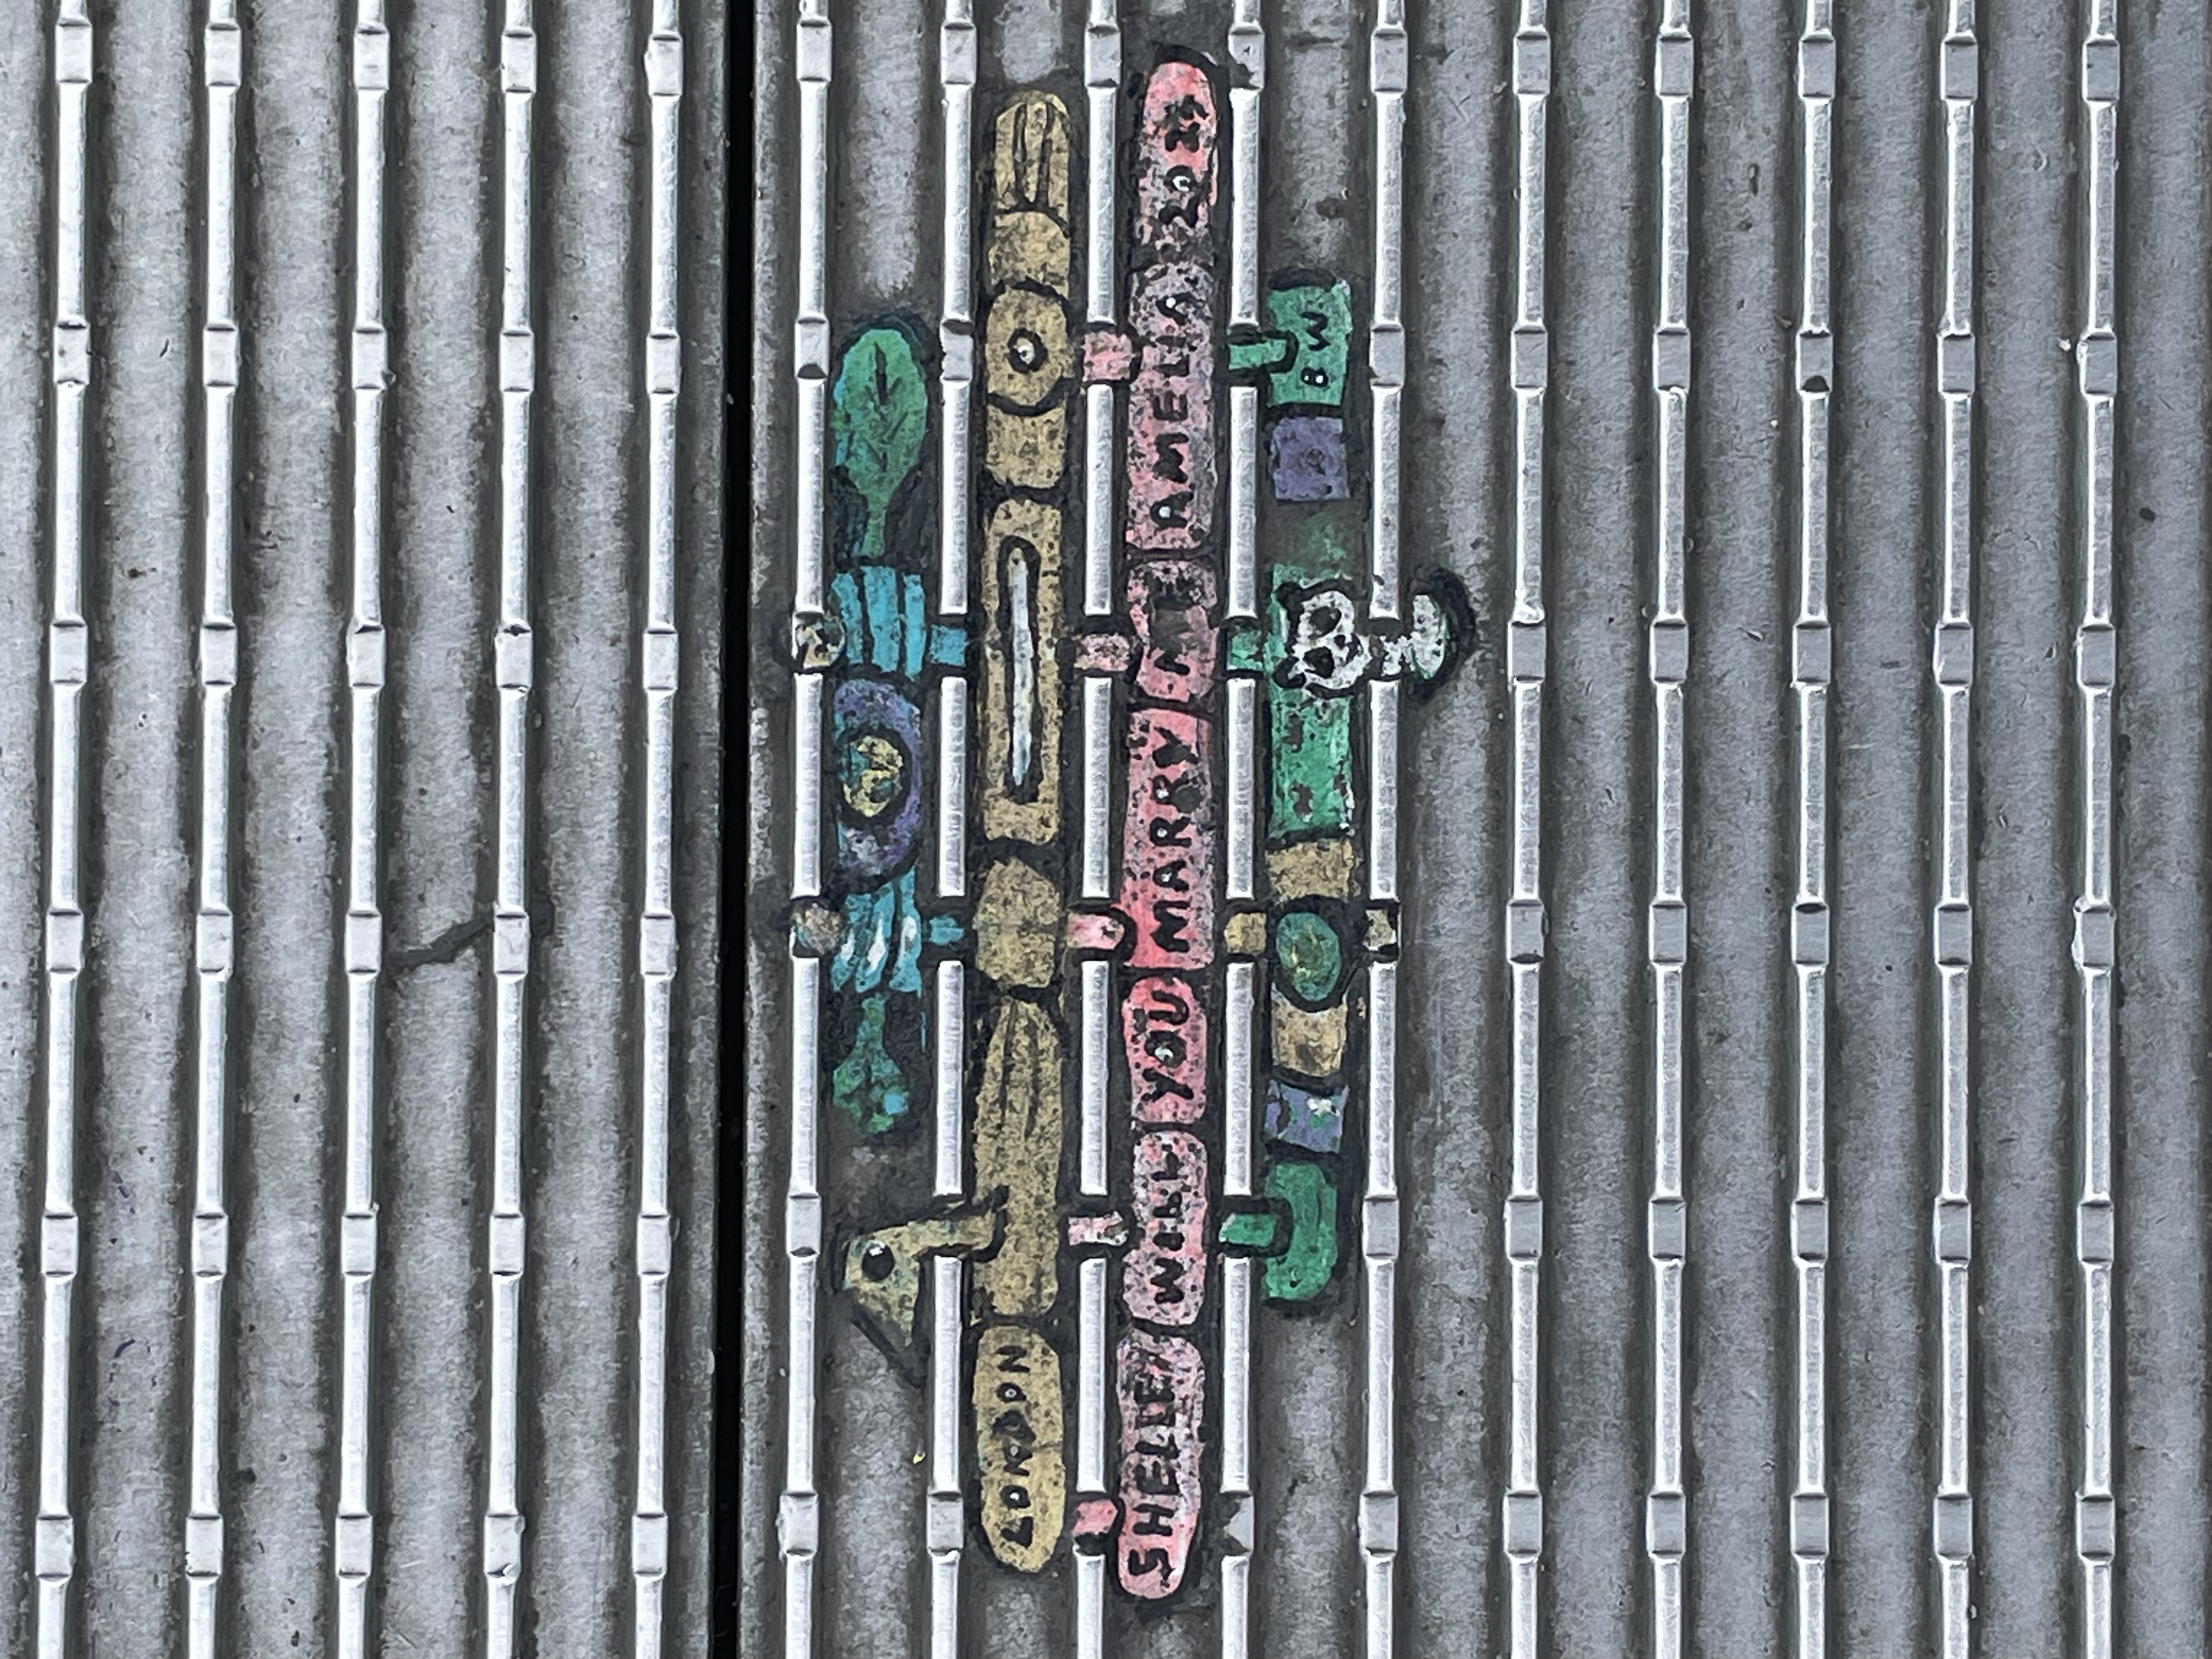 LONDON
SHELLEY WILL YOU MARRY ME AMELIA
BW